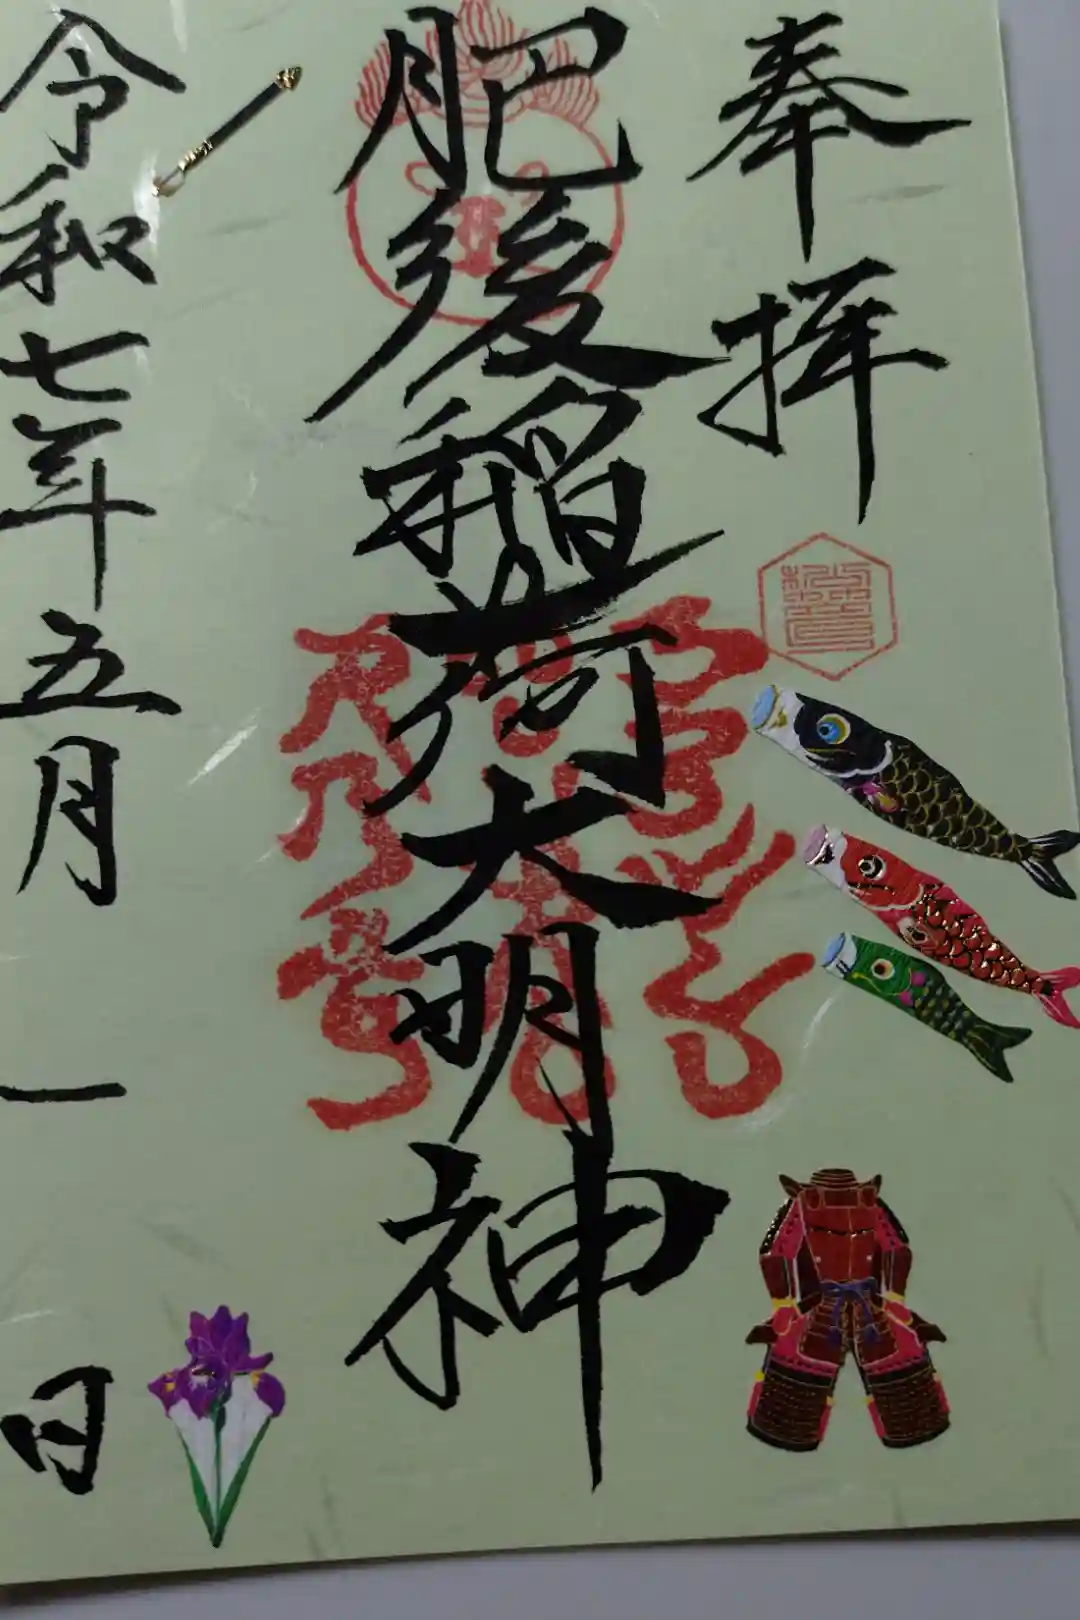 奉拝
肥後稲荷大明神
令和七年五月一日